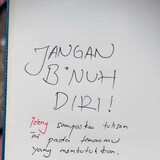 JANGAN
B*NUH
DIRI!
Tolong sampaikan tulisan
ini pada temanmu
yang membutuhkan.